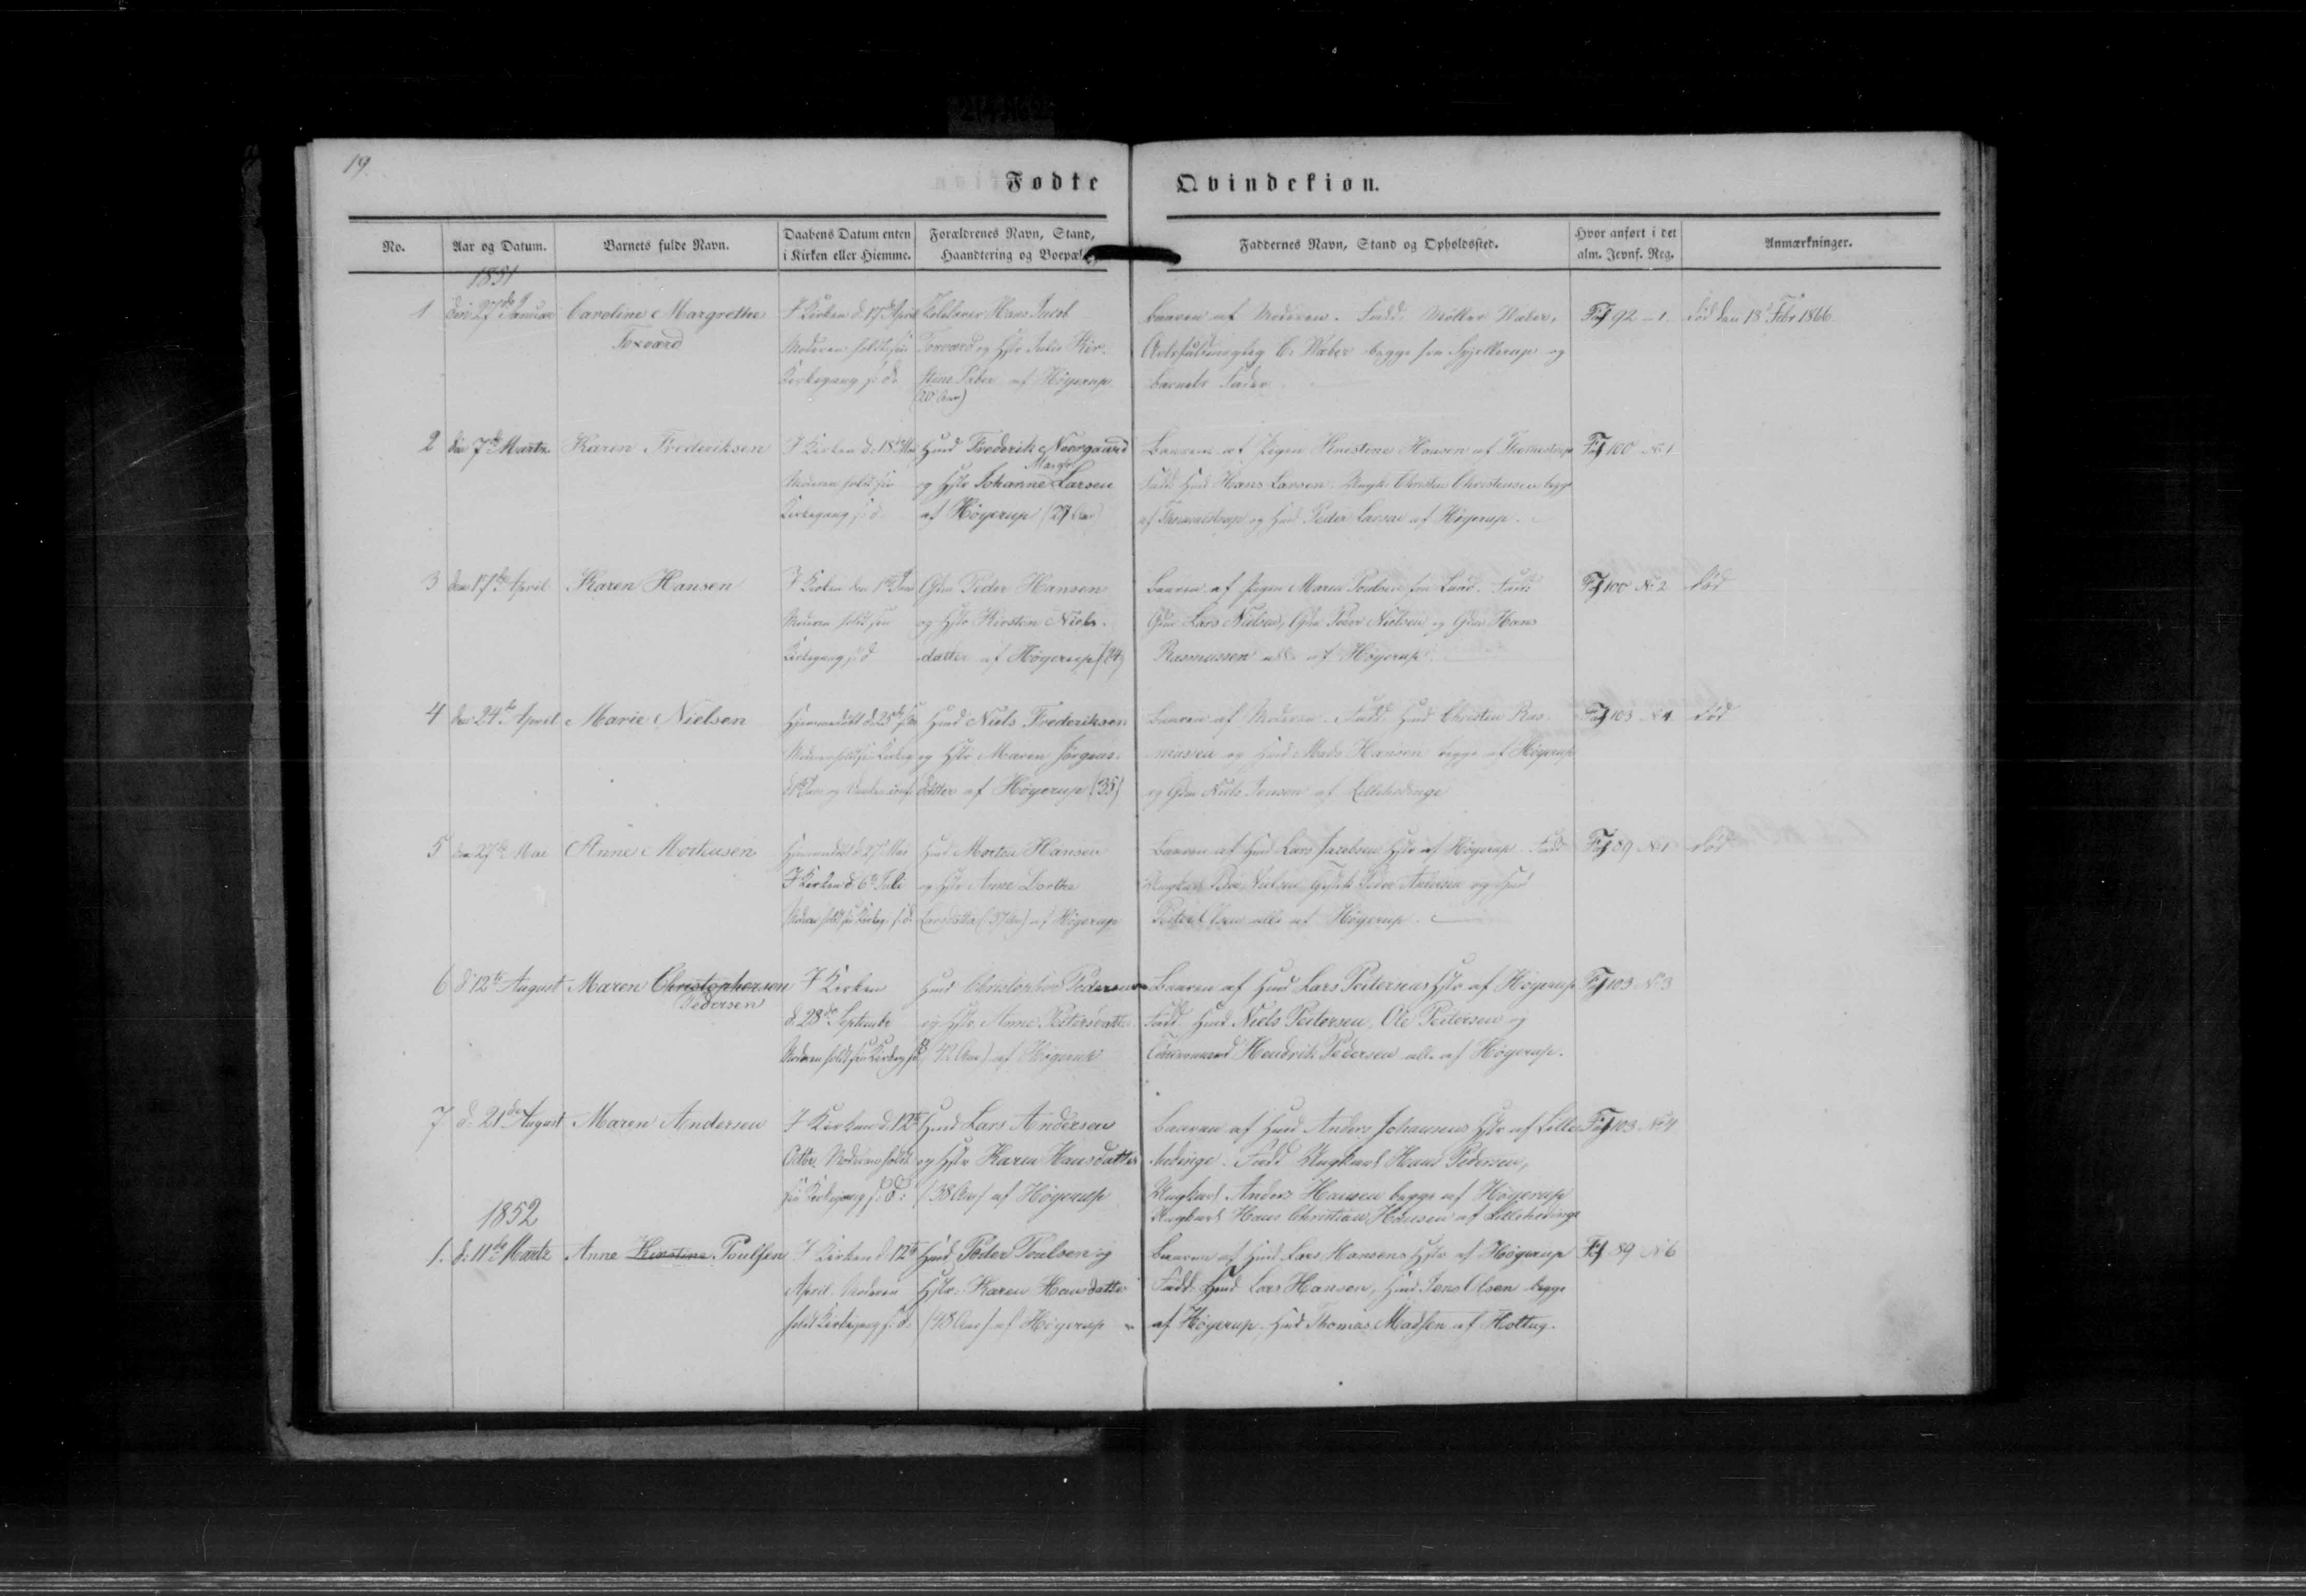 19.
Fødte Qvindekiøn.
No.
Aar og Datum.
Barnets fulde Navn.
Daabens Datum enten
i Kirken eller Hiemme.
Forældrenes Navn, Stand,
Haandtering og Boepæl
Faddernes Navn, Stand og Opholdssted.
Hvor anført i det
alm. Jevnf. Reg.
Anmærkninger.
1851
1
den 27de Januar
Caroline Margrethe
Toxværd
I Kirken d. 17de April
Moderen holdt sin
Kirkegang s: D:
Hans Jacob
Toxværd og Hstr Julie Kir-
stine af Høyerup
(20 Aar)
Baaren af Moderen. Fadd: Møller Wæber,
C. Wæber begge fra og
Barnets Fader
Fol 92 - 1.
død den 18 Febr 1866
2
den 7de Marts
Karen Frederiksen
I Kirken d: 18de Mai
Moderen holdt sin
Kirkegang s: d:
Huusd Frederik Norgaard
og Hstr Johanne Marg. Larsen
af Høyerup (27 Aar)
Baaren af Pigen Kirstine Hansen af
Fadd: Huusd Hans Larsen. Ungk: Christen Christensen begge
af og Huusd Peder Larsen af Høyerup.
Fol 100 No 1
3
den 17de April
Karen Hansen
I Kirken den 1ste Juni
Moderen holdt sin
Kirkegang s: d
Gdm Peder Hansen
og Hstr Kirsten Niels-
datter af Høyerup (24)
Baaren af Pigen Maren Poulsen fra Lund. Fadd:
Gdm Lars Nielsen, Gdm Peder Nielsen og Gdm Hans
Rasmussen alle af Høyerup.
Fol 100 No 2
død
4
den 24de April
Marie Nielsen
Hjemmedøbt d: 25de
Moderen holdt sin Kirkeg
Huusd Niels Frederiksen
og Hstr Maren Jørgens-
datter af Høyerup (35)
Baaren af Moderen. Fadd: Huusd Christen Ras-
mussen og Huusd Mads Hansen begge af Høyerup
og Gdm Niels Jensen af Lillehedinge
Fol 103 No 1
død
5
den 27de Mai
Anne Mortensen
Hjemmedøbt d 27 Mai
I Kirken d: 6te Juli
Moderen holdt sin Kirkeg: s: d:
Huusd Morten Hansen
og Hstr Anne Dorthe
Larsdatter (37 Aar) af Høyerup
Baaren af Huusd Lars Jacobsens Hstr af Høyerup. Fadd:
Ungkarl Peder Nielsen, Peder Andersen og Huusd
Peder Olsen alle af Høyerup.
Fol 89 No 1
død
6
d: 12te August
Maren Christophersen
Pedersen
I Kirken
d. 28de Septembr
Moderen holdt sin Kirkeg s: D
Huusd Christopher Pedersen
og Hstr. Anne Peitersdatter
(42 Aar) af Høyerup
Baaren af Huusd Lars Peitersens Hstr af Høyerup
Fadd: Huusd Niels Peitersen, Ole Peitersen og
Hendrik Pedersen alle af Høyerup.
Fol 103 No 3
7
d: 21de August
Maren Andersen
I Kirken d. 12te
Octbr. Moderen holdt
sin Kirkegang s: D:
Huusd Lars Andersen
og Hstr Karen Hansdatter
(38 Aar) af Høyerup
Baaren af Huusd Anders Johansens Hstr af Lille
hedinge. Fadd Ungkarl Hans Pedersen,
Ungkarl Anders Hansen begge af Høyerup
Ungkarl Hans Christian Hansen af Lillehedinge
Fol 103 No 4
1852
1.
d: 11de Marts
Anne Kirstine Poulsen
I Kirken d: 12te
April. Moderen
holdt Kirkegang s: d:
Huusd Peder Poulsen og
Hstr. Karen Hansdatter
(48 Aar) af Høyerup
Baaren af Huusd Lars Hansens Hstr af Høyerup
Fadd: Huusd Lars Hansen, Huusd Jens Olsen begge
af Høyerup. Huusd Thomas Madsen af Holtug.
Fol 89 No 6